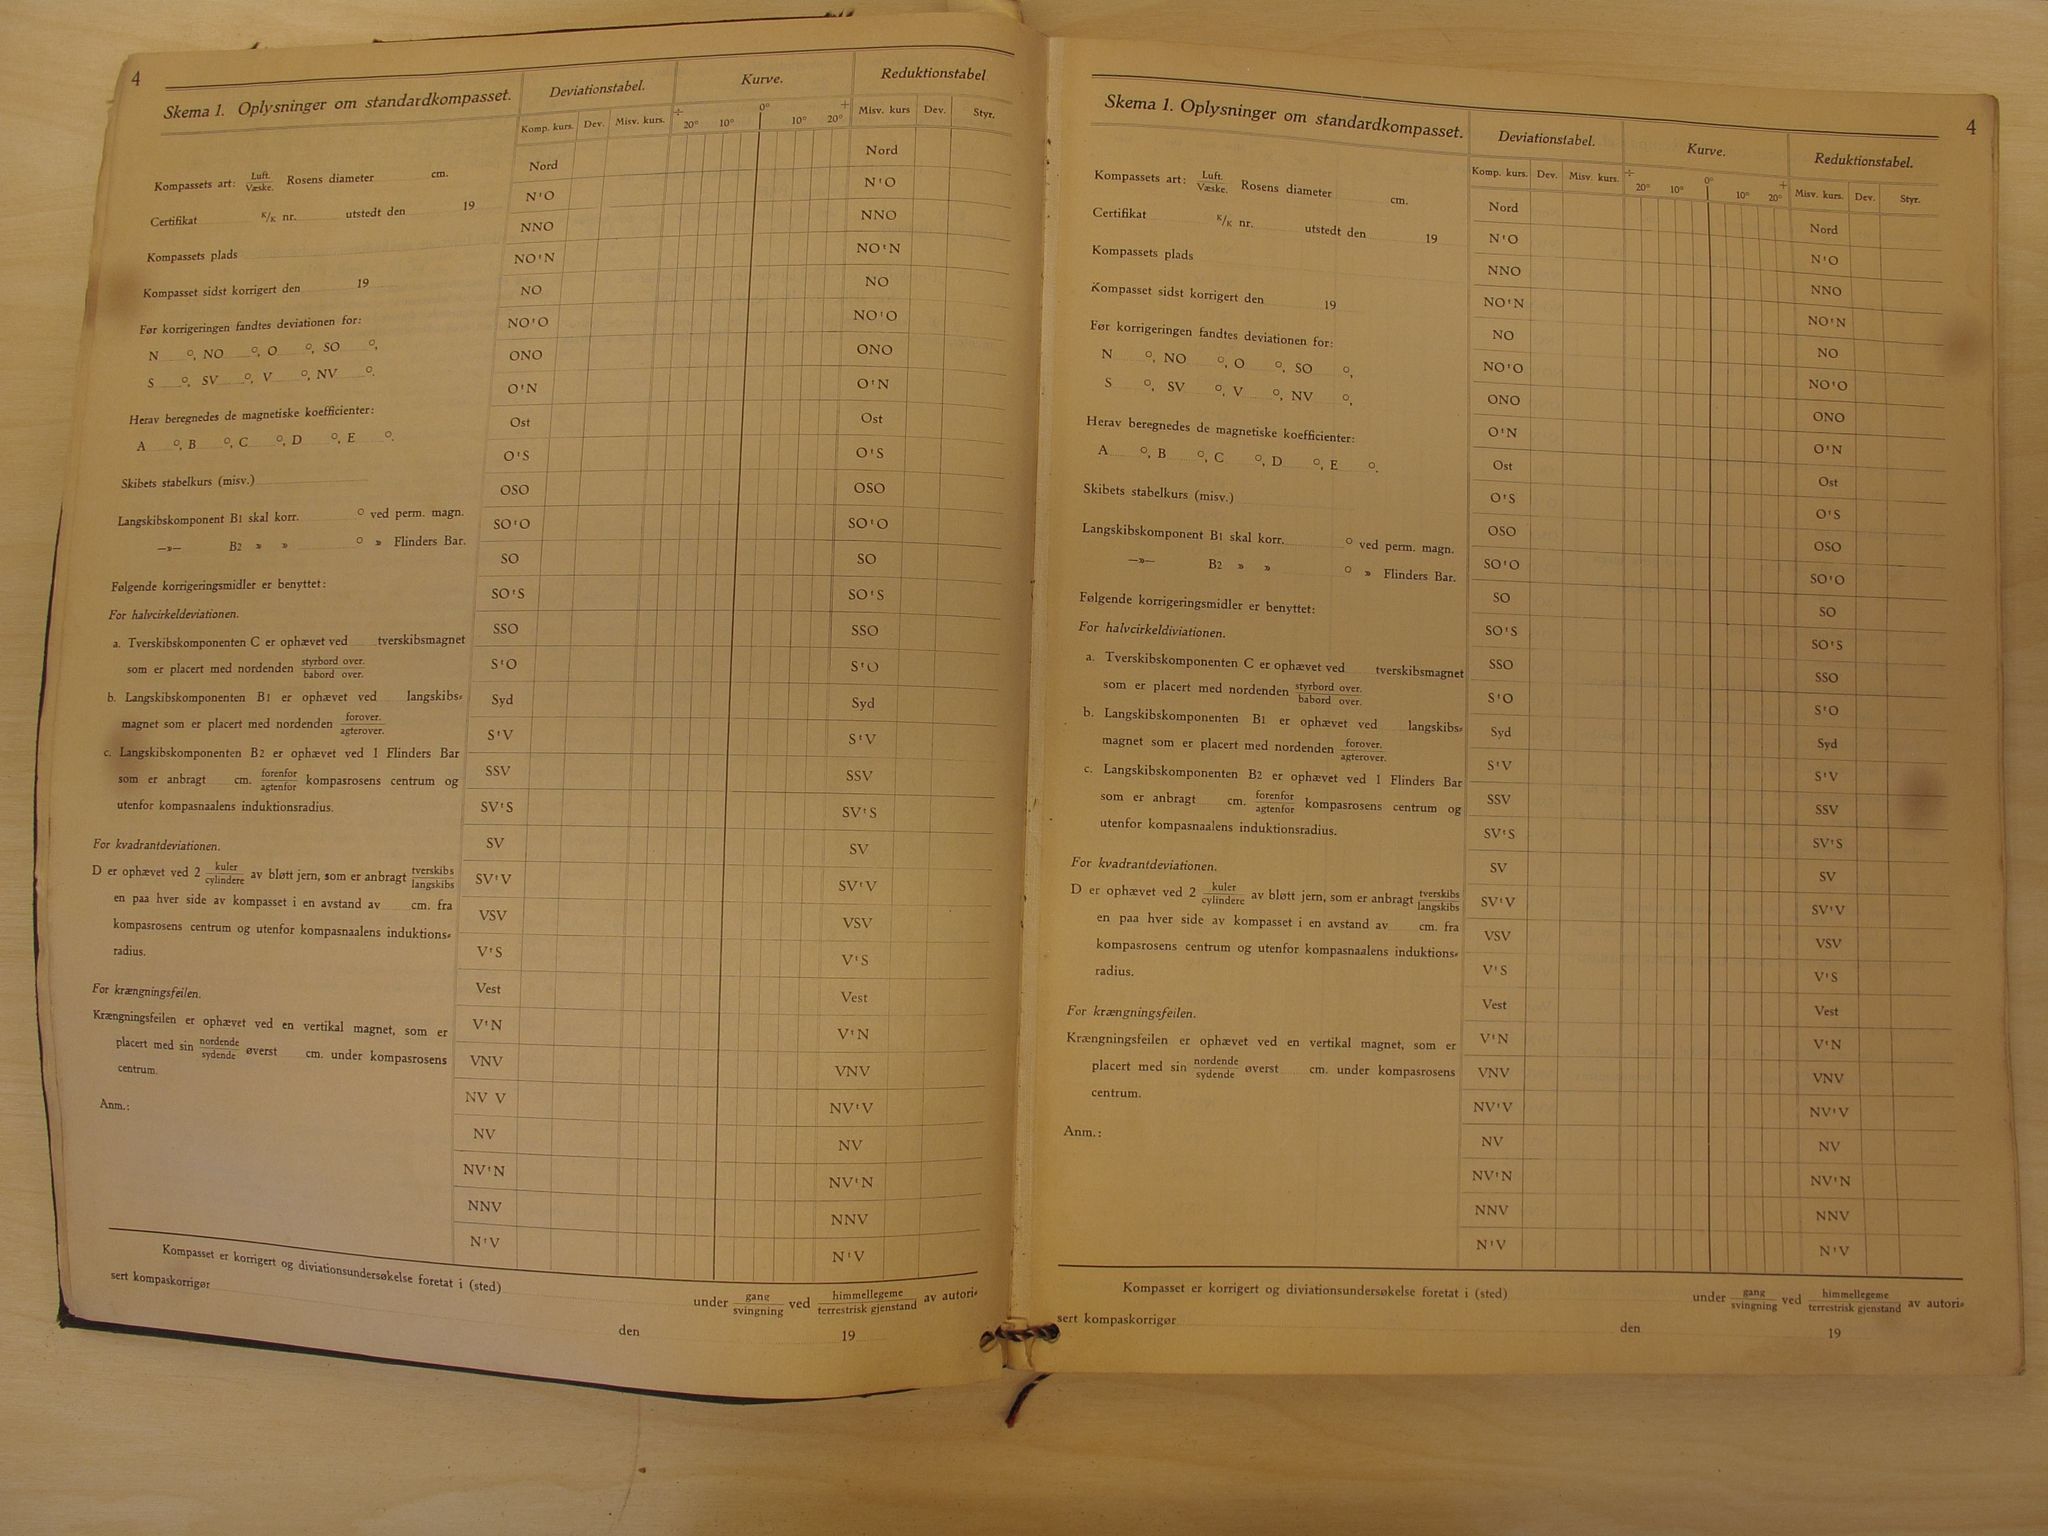 4
Skema 1. Oplysninger om standardkompasset.
Kompassets art: Luft. Væske. Rosens diameter cm.
Certifikat K/K nr. utstedt den 19
Kompassets plads
Kompasset sidst korrigert den 19
Før korrigeringen fandtes deviationen for:
N °, NO °, O °, SO °,
S °, SV °, V °, NV °.
Herav beregnedes de magnetiske koefficienter:
A °, B °, C °, D °, E °.
Skibets stabelkurs (misv.)
Langskibskomponent B1 skal korr. ° ved perm. magn.
—»— B2 » » ° » Flinders Bar.
Følgende korrigeringsmidler er benyttet:
For halvcirkeldeviationen.
a. Tverskibskomponenten C er ophævet ved tverskibsmagnet
som er placert med nordenden styrbord over. babord over.
b. Langskibskomponenten B1 er ophævet ved langskibs=
magnet som er placert med nordenden forover. agterover.
c. Langskibskomponenten B2 er ophævet ved 1 Flinders Bar
som er anbragt cm. forenfor agtenfor kompasrosens centrum og
utenfor kompasnaalens induktionsradius.
For kvadrantdeviationen.
D er ophævet ved 2 kuler cylindere av bløtt jern, som er anbragt tverskibs langskibs
en paa hver side av kompasset i en avstand av cm. fra
kompasrosens centrum og utenfor kompasnaalens induktions=
radius.
For krængningsfeilen.
Krængningsfeilen er ophævet ved en vertikal magnet, som er
placert med sin nordende sydende øverst cm. under kompasrosens
centrum.
Anm.:
Deviationstabel. Kurve. Reduktionstabel
Komp. kurs. Dev. Misv. kurs. ÷ 20° 10° 0° 10° 20° + Misv. kurs Dev. Styr.
Nord Nord
N'O N'O
NNO NNO
NO'N NO'N
NO NO
NO'O NO'O
ONO ONO
O'N O'N
Ost Ost
O'S O'S
OSO OSO
SO'O SO'O
SO SO
SO'S SO'S
SSO SSO
S'O S'O
Syd Syd
S'V S'V
SSV SSV
SV'S SV'S
SV SV
SV'V SV'V
VSV VSV
V'S V'S
Vest Vest
V'N V'N
VNV VNV
NV V NV'V
NV NV
NV'N NV'N
NNV NNV
N'V N'V
Kompasset er korrigert og diviationsundersøkelse foretat i (sted) under gang svingning ved himmellegeme terrestrisk gjenstand av autori=
sert kompaskorrigør den 19
4
Skema 1. Oplysninger om standardkompasset.
Kompassets art: Luft. Væske. Rosens diameter cm.
Certifikat K/K nr. utstedt den 19
Kompassets plads
Kompasset sidst korrigert den 19
Før korrigeringen fandtes deviationen for:
N °, NO °, O °, SO °,
S °, SV °, V °, NV °,
Herav beregnedes de magnetiske koefficienter:
A °, B °, C °, D °, E °.
Skibets stabelkurs (misv.)
Langskibskomponent B1 skal korr. ° ved perm. magn.
—»— B2 » » ° » Flinders Bar.
Følgende korrigeringsmidler er benyttet:
For halvcirkeldiviationen.
a. Tverskibskomponenten C er ophævet ved tverskibsmagnet
som er placert med nordenden styrbord over. babord over.
b. Langskibskomponenten B1 er ophævet ved langskibs=
magnet som er placert med nordenden forover. agterover.
c. Langskibskomponenten B2 er ophævet ved 1 Flinders Bar
som er anbragt cm. forenfor agtenfor kompasrosens centrum og
utenfor kompasnaalens induktionsradius.
For kvadrantdeviationen.
D er ophævet ved 2 kuler cylindere av bløtt jern, som er anbragt tverskibs langskibs
en paa hver side av kompasset i en avstand av cm. fra
kompasrosens centrum og utenfor kompasnaalens induktions=
radius.
For krængningsfeilen.
Krængningsfeilen er ophævet ved en vertikal magnet, som er
placert med sin nordende sydende øverst cm. under kompasrosens
centrum.
Anm.:
Deviationstabel. Kurve. Reduktionstabel.
Komp. kurs. Dev. Misv. kurs. ÷ 20° 10° 0° 10° 20° + Misv. kurs. Dev. Styr.
Nord Nord
N'O N'O
NNO NNO
NO'N NO'N
NO NO
NO'O NO'O
ONO ONO
O'N O'N
Ost Ost
O'S O'S
OSO OSO
SO'O SO'O
SO SO
SO'S SO'S
SSO SSO
S'O S'O
Syd Syd
S'V S'V
SSV SSV
SV'S SV'S
SV SV
SV'V SV'V
VSV VSV
V'S V'S
Vest Vest
V'N V'N
VNV VNV
NV'V NV'V
NV NV
NV'N NV'N
NNV NNV
N'V N'V
Kompasset er korrigert og diviationsundersøkelse foretat i (sted) under gang svingning ved himmellegeme terrestrisk gjenstand av autori=
sert kompaskorrigør den 19